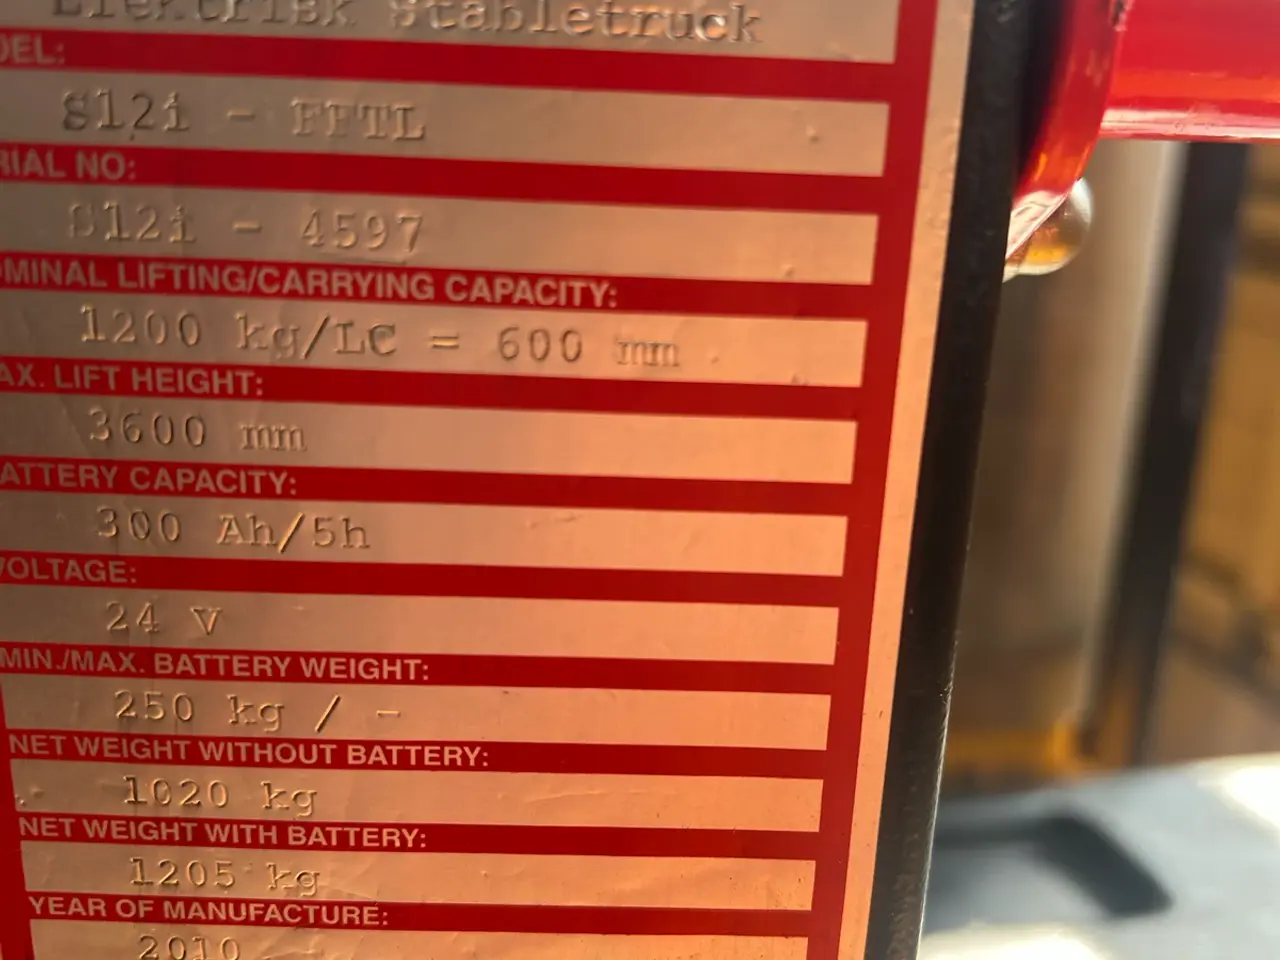 Elektrisk Stabletruck
DEL:
S12i - FFTL
RIAL NO:
S12i - 4597
OMINAL LIFTING/CARRYING CAPACITY:
1200 kg/LC = 600 mm
AX. LIFT HEIGHT:
3600 mm
ATTERY CAPACITY:
300 Ah/5h
VOLTAGE:
24 V
MIN./MAX. BATTERY WEIGHT:
250 kg / -
NET WEIGHT WITHOUT BATTERY:
1020 kg
NET WEIGHT WITH BATTERY:
1205 kg
YEAR OF MANUFACTURE:
2010